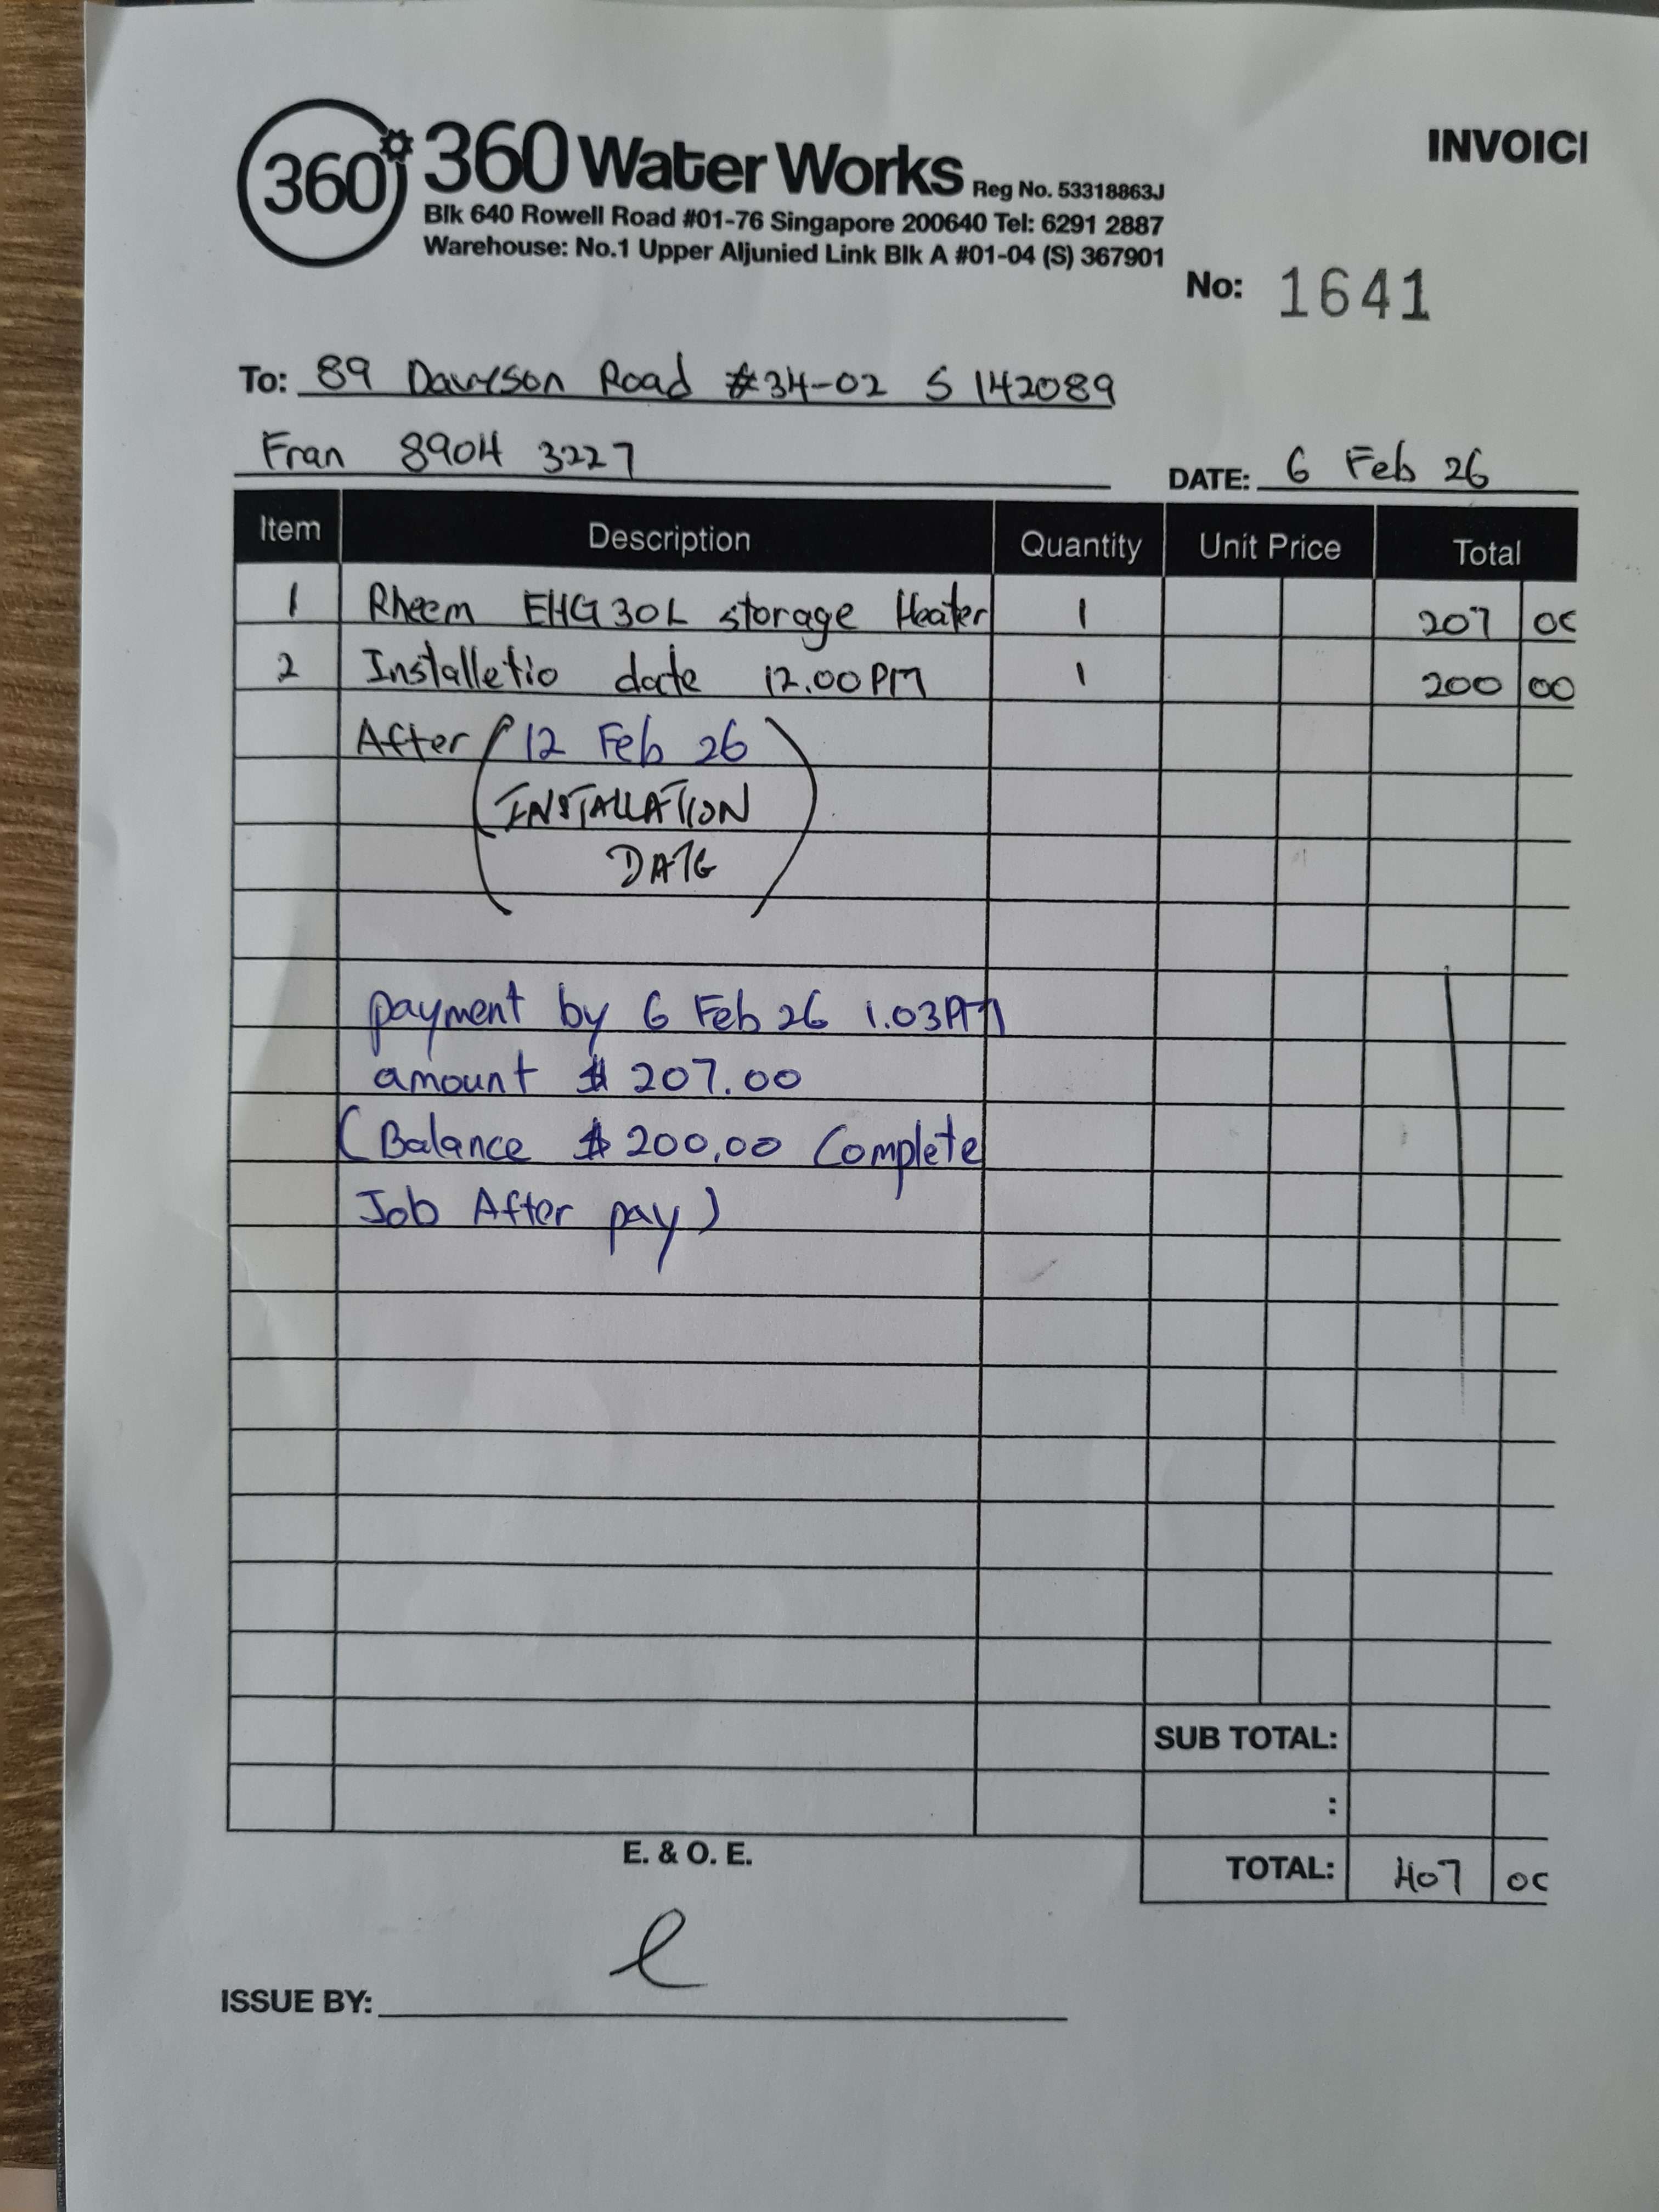 360° 360 Water Works Reg No. 53318863J
INVOICI
Blk 640 Rowell Road #01-76 Singapore 200640 Tel: 6291 2887
Warehouse: No.1 Upper Aljunied Link Blk A #01-04 (S) 367901
No: 1641
To: 89 Dawson Road #34-02 S 142089
Fran 8904 3227
DATE: 6 Feb 26
Item Description Quantity Unit Price Total
1 Rheem EHG 30L storage Heater 1 207 00
2 Installetio date 12.00PM 1 200 00
After (12 Feb 26
INSTALLATION
DATE)
payment by 6 Feb 26 1.03PM
amount $ 207.00
(Balance $ 200.00 Complete
Job After pay)
SUB TOTAL:
:
E. & O. E.
TOTAL: 407 00
ISSUE BY: